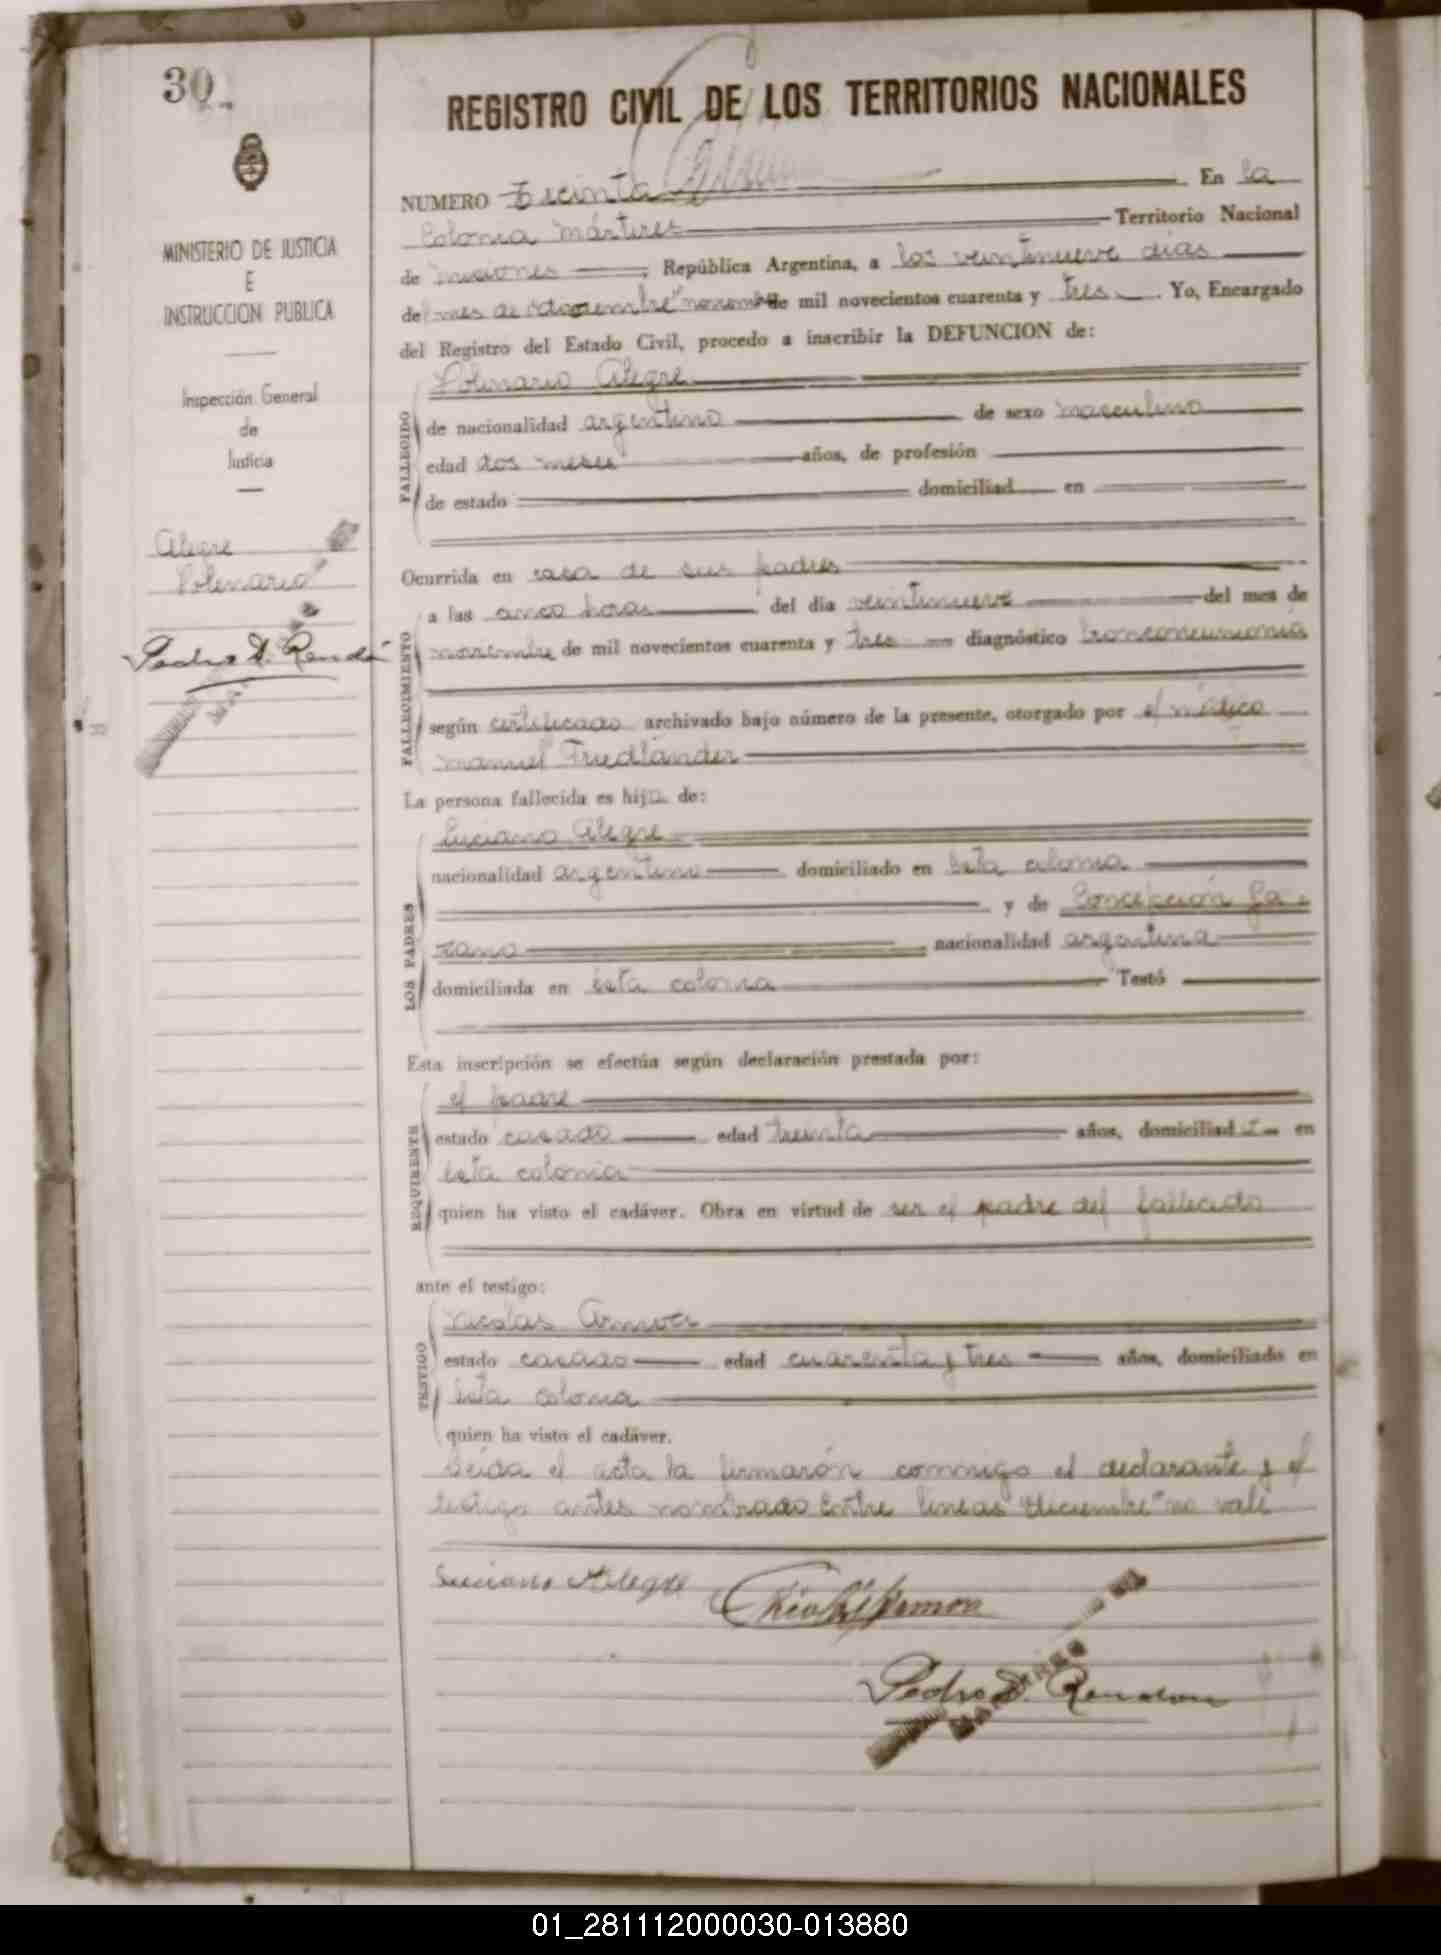 30
REGISTRO CIVIL DE LOS TERRITORIOS NACIONALES
MINISTERIO DE JUSTICIA
E
INSTRUCCION PUBLICA
Inspección General
de
Justicia
Alegre
Polinario
Pedro D. Rendó
NUMERO Treinta En la
Colonia Mártires Territorio Nacional
de Misiones República Argentina, a los veintinueve días
del mes de "noviembre de mil novecientos cuarenta y tres Yo, Encargado
del Registro del Estado Civil, procedo a inscribir la DEFUNCION de:
FALLECIDO
Polinario Alegre
de nacionalidad argentino de sexo masculino
edad dos meses años, de profesión
de estado domiciliad en
Ocurrida en casa de sus padres
FALLECIMIENTO
a las cinco horas del día veintinueve del mes de
noviembre de mil novecientos cuarenta y tres diagnóstico bronconeumonia
según certificado archivado bajo número de la presente, otorgado por el médico
Manuel Friedlander
La persona fallecida es hijo de:
LOS PADRES
Luciano Alegre
nacionalidad argentino domiciliado en esta colonia
y de Concepción
nacionalidad argentina
domiciliada en esta colonia Testó
Esta inscripción se efectúa según declaración prestada por:
REQUIRENTE
el padre
estado casado edad treinta años, domiciliad en
esta colonia
quien ha visto el cadáver. Obra en virtud de ser el padre del fallecido
ante el testigo:
TESTIGO
Nicolas
estado casado edad cuarenta y tres años, domiciliado en
esta colonia
quien ha visto el cadáver.
Leida el acta la firmarón conmigo el declarante y el
testigo antes nombrado Entre lineas "diciembre" no vale
Luciano Alegre
Pedro D. Rendon
01_281112000030-013880